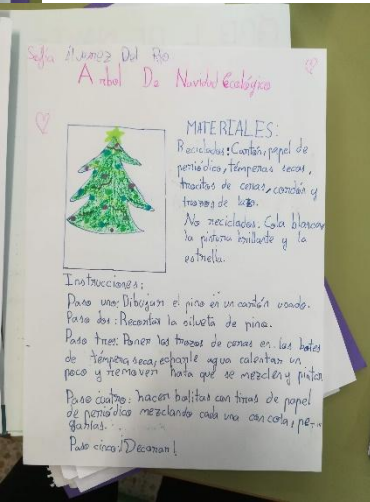 Sofía Álvarez Del Río
Árbol De Navidad Ecológico
MATERIALES:
Reciclados: Cartón, papel de
periódico, témperas secas,
trocitos de ceras, cordón y
trozos de
No reciclados: Cola blanca
la pintura brillante y la
estrella.
Instrucciones:
Paso uno: Dibujar el pino en un cartón usado.
Paso dos: Recortar la silueta de pino.
Paso tres: Poner los trozos de ceras en los botes
de témpera seca, echarle agua calentar un
poco y remover hata que se mezclen y pintar
Paso cuatro: hacer bolitas con tiras de papel
de periódico mezclando cada una con cola, pe-
garlas.
Paso cinco ¡Decorar!